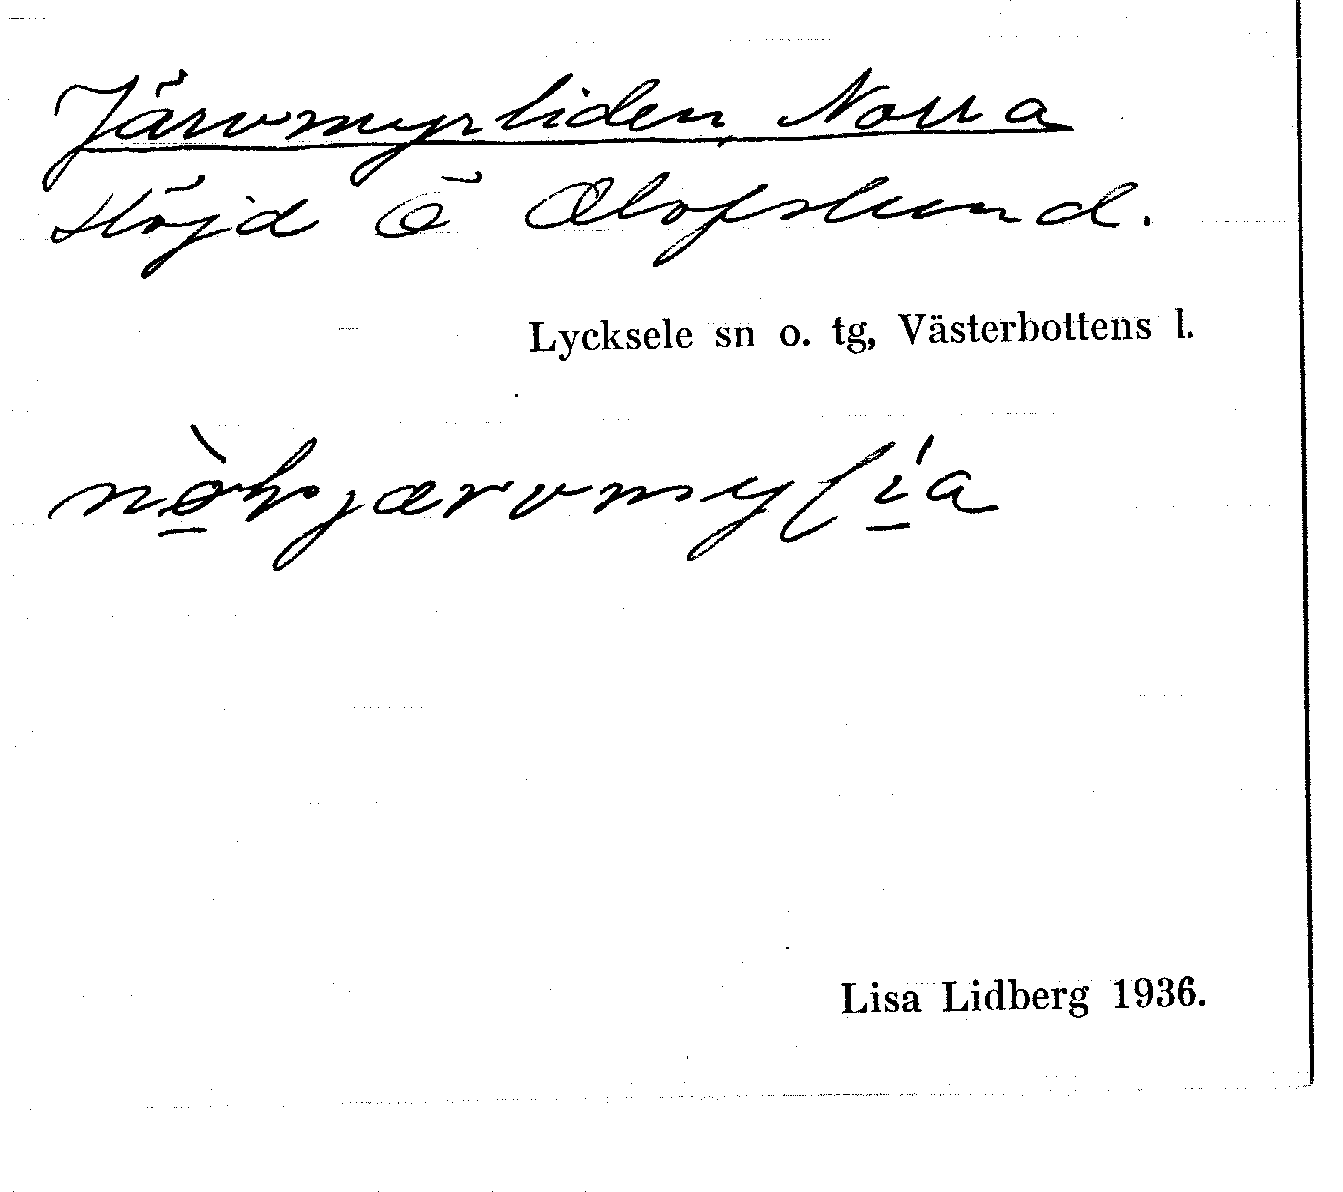 Järvmyrliden, Norra
Höjd Ö Olofslund.
Lycksele sn o. tg, Västerbottens l.
Lisa Lidberg 1936.